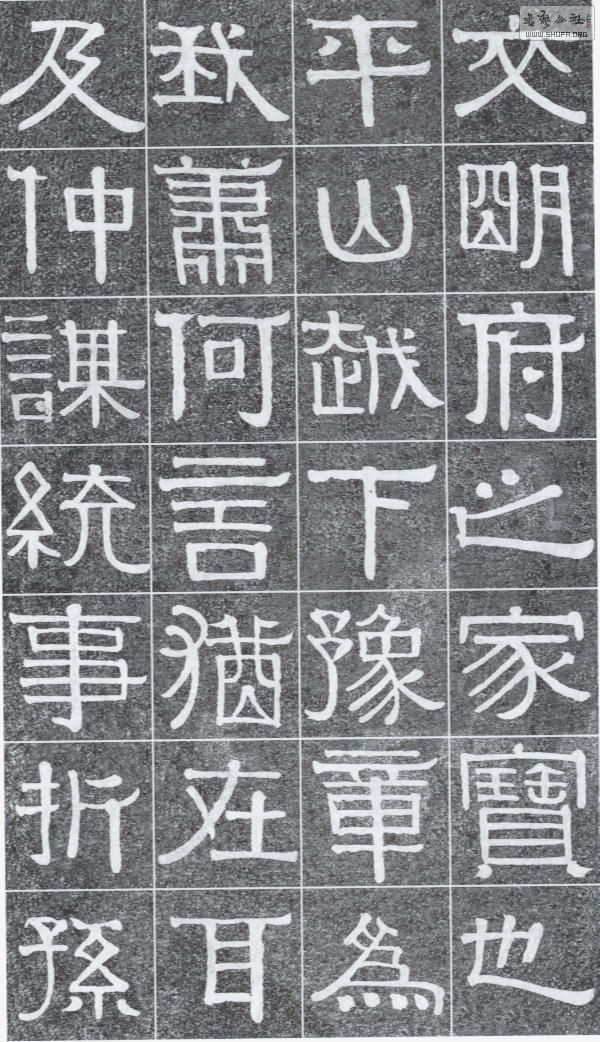 明府之家寶也
平山越下豫章為
我蕭何言猶在耳
及仲謀統事折孫
WWW.SHUFA.ORG